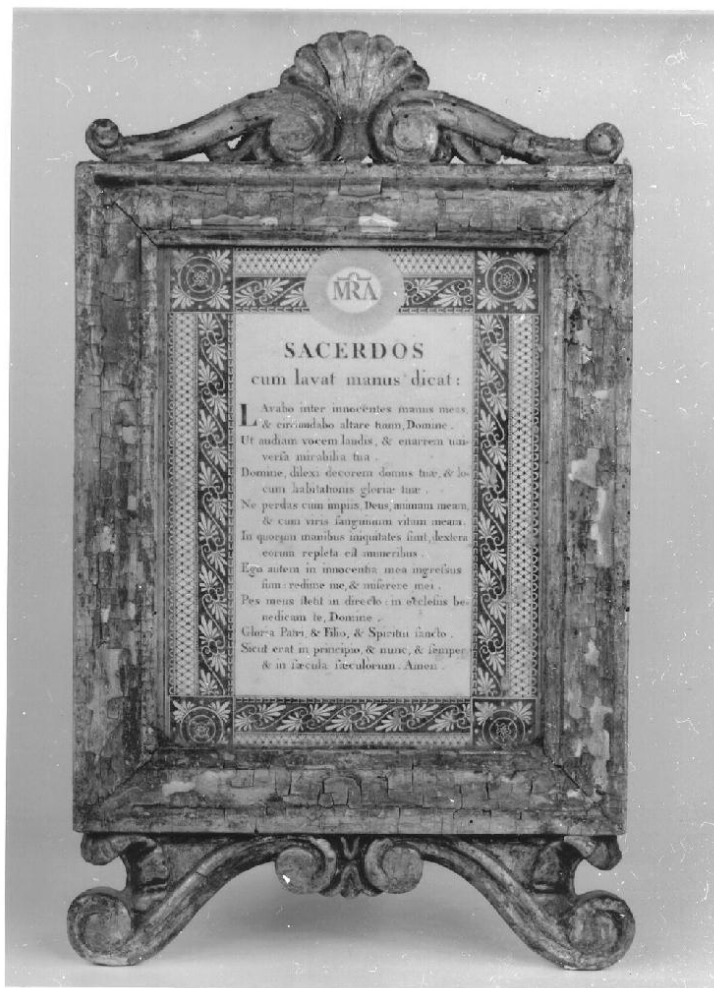 MRA
SACERDOS
cum lavat manus dicat:
LAvabo inter innocentes manus meas,
& circumdabo altare tuum, Domine.
Ut audiam vocem laudis, & enarrem uni-
verſa mirabilia tua.
Domine, dilexi decorem domus tuæ, & lo-
cum habitationis gloriæ tuæ.
Ne perdas cum impiis, Deus, animam meam,
& cum viris ſanguinum vitam meam.
In quorum manibus iniquitates ſunt, dextera
eorum repleta eſt muneribus.
Ego autem in innocentia mea ingreſſus
ſum: redime me, & miſerere mei.
Pes meus ſtetit in directo: in eccleſiis be-
nedicam te, Domine.
Gloria Patri, & Filio, & Spiritui ſancto.
Sicut erat in principio, & nunc, & ſemper,
& in ſæcula ſæculorum. Amen.